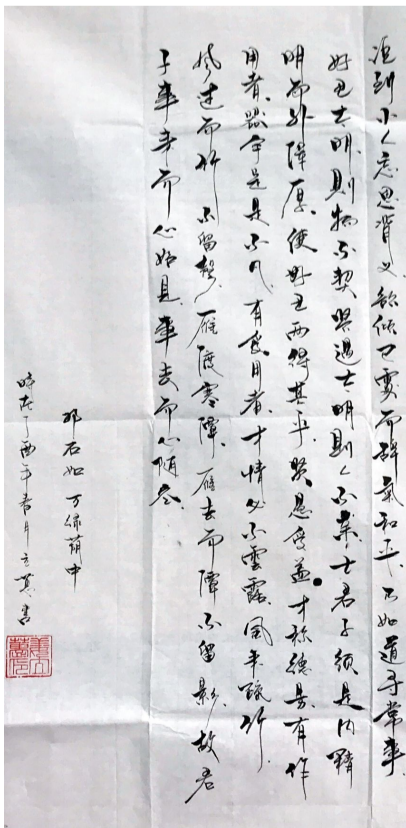 到小人忘恩背义欲倾己處而辞氣和平只如道寻常事
好丑太明則物不契賢愚太明則人不亲士君子須是内精
明而外障厚使好丑两得其平賢愚受益才称德量有作
用者器宇定是不凡有食用者才情必不靈露風来疏竹
風过而竹不留聲雁度寒障雁去而障不留影故君
子事来而心始見事去而心随空
邓石如万绿荫中
時在丁酉年春月立書